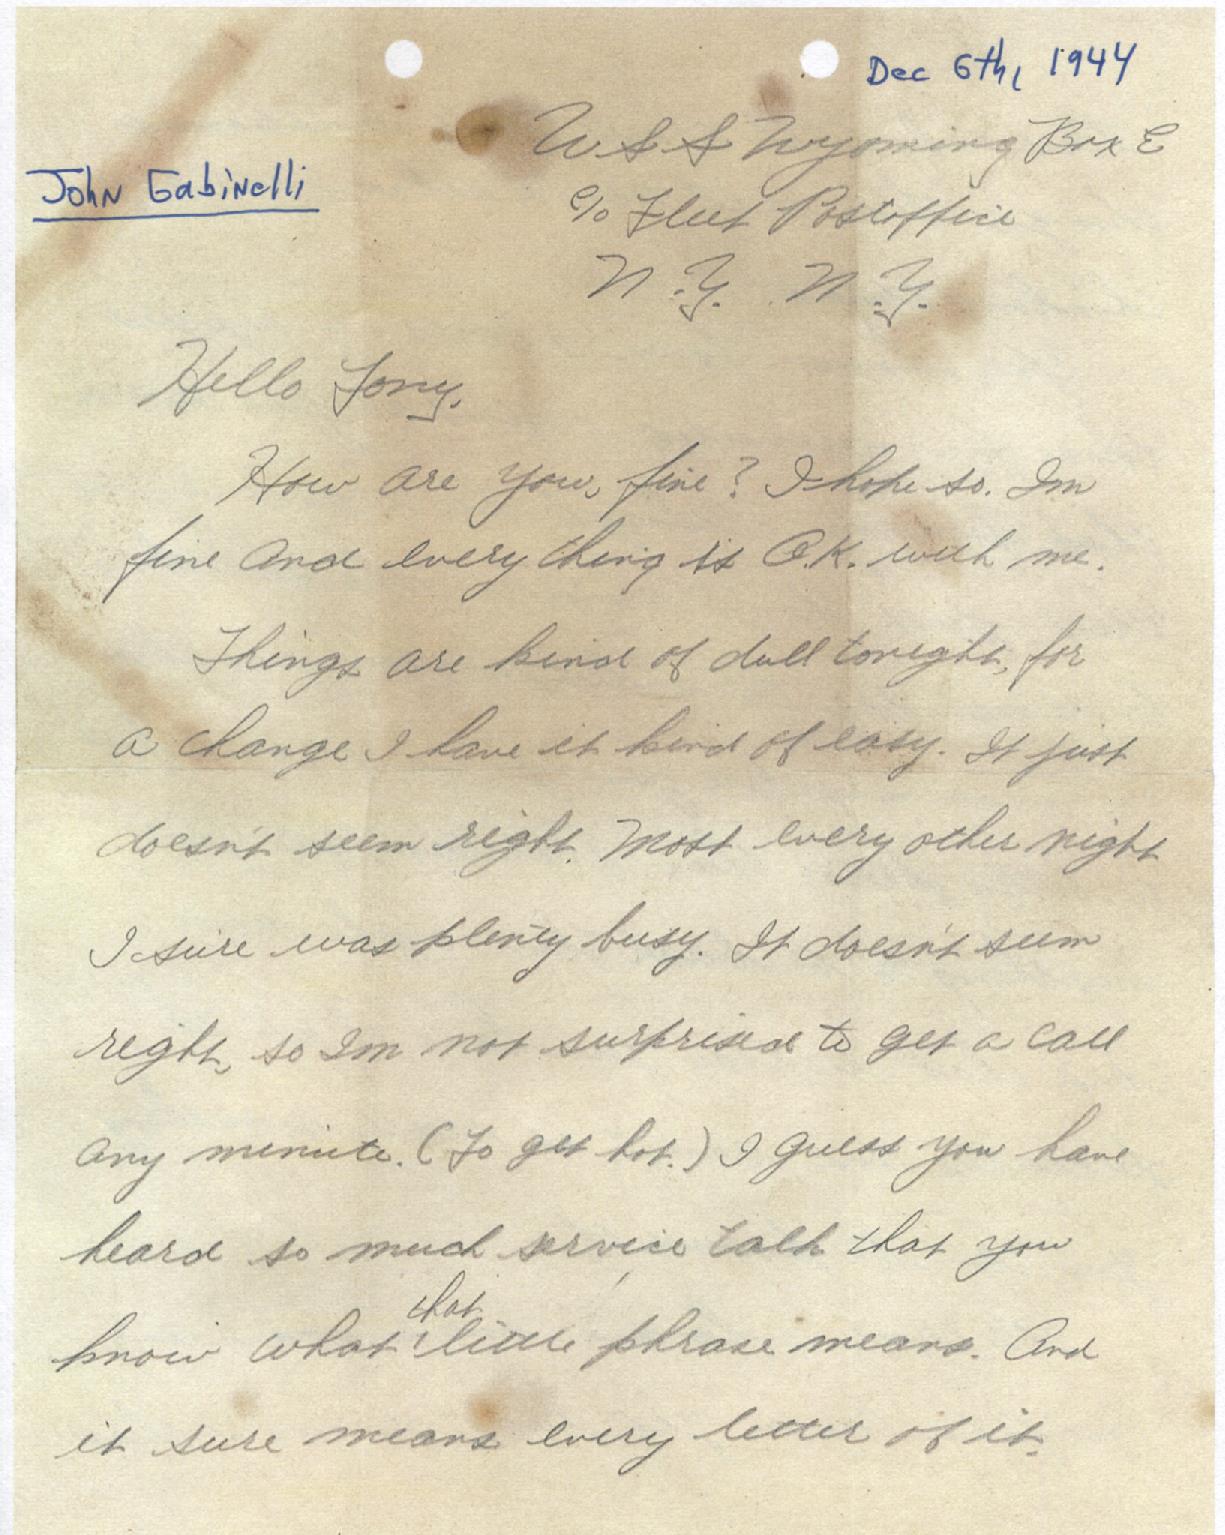 Dec 6th, 1944
U S S Wyoming Box E
John Gabinelli
c/o Fleet Postoffice
N.Y. N.Y.
Hello Tony,
How are you, fine? I hope so. Im
fine and everything is O.K. with me.
Things are kind of dull tonight, for
a change I have it kind of easy. It just
doesn't seem right. Most every other night
I sure was plenty busy. It doesn't seem
right, so Im not surprised to get a call
any minute. (To get hot.) I guess you have
heard so much service talk that you
that
know what little phrase means. And
it sure means every letter of it.